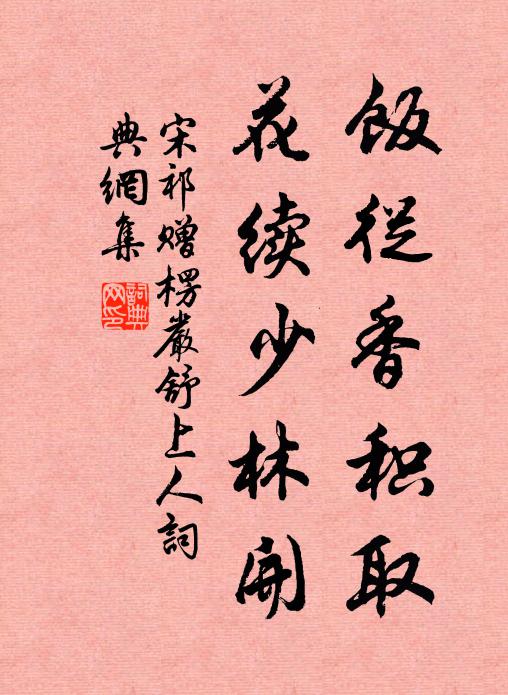 飯從香积取
花續少林開
宋祁贈楞嚴舒上人詞
典網集
詞典网印